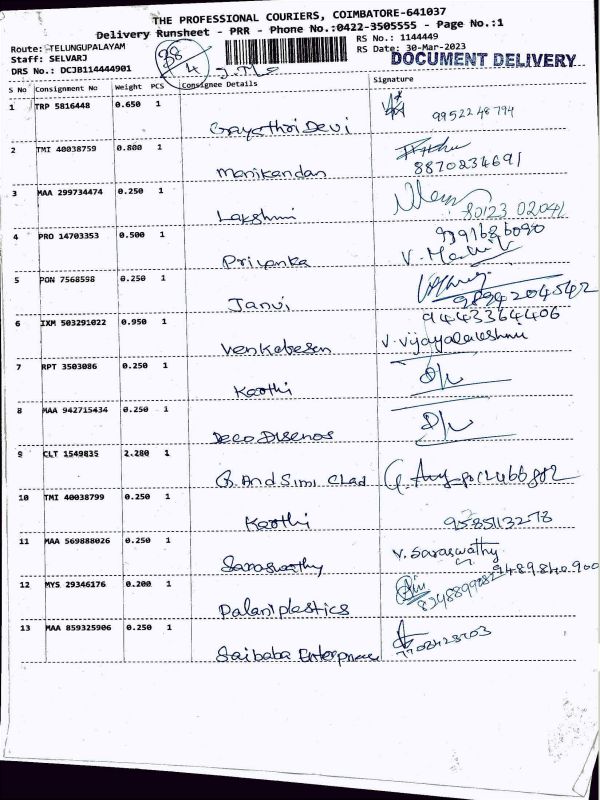 THE PROFESSIONAL COURIERS, COIMBATORE-641037
Delivery Runsheet - PRR - Phone No.:0422-3505555 - Page No.:1
Route: TELUNGUPALAYAM
RS No.: 1144449
Staff: SELVARJ
38/4
RS Date: 30-Mar-2023
DOCUMENT DELIVERY
DRS No.: DCJB114444901
S No Consignment No Weight PCS Consignee Details Signature
1 TRP 5816448 0.650 1
Gayathri Devi 9952248794
2 TMI 40038759 0.800 1
Manikandan 8870234691
3 MAA 299734474 0.250 1
Lakshmi 80123 02041
4 PRO 14703353 0.500 1
Priyanka
5 PON 7568598 0.250 1
Janvi 9894204542
6 IXM 503291022 0.950 1 9443364406
Venkatesan V. Vijayalakshmi
7 RPT 3503086 0.250 1
Keerthi
8 MAA 942715434 0.250 1
9 CLT 1549835 2.280 1
10 TMI 40038799 0.250 1
Keerthi 9585113278
11 MAA 569888026 0.250 1
Saraswathy V. Saraswathy
12 MYS 29346176 0.200 1 9489840900
Palani plastics
13 MAA 859325906 0.250 1
Saibaba Enterprises